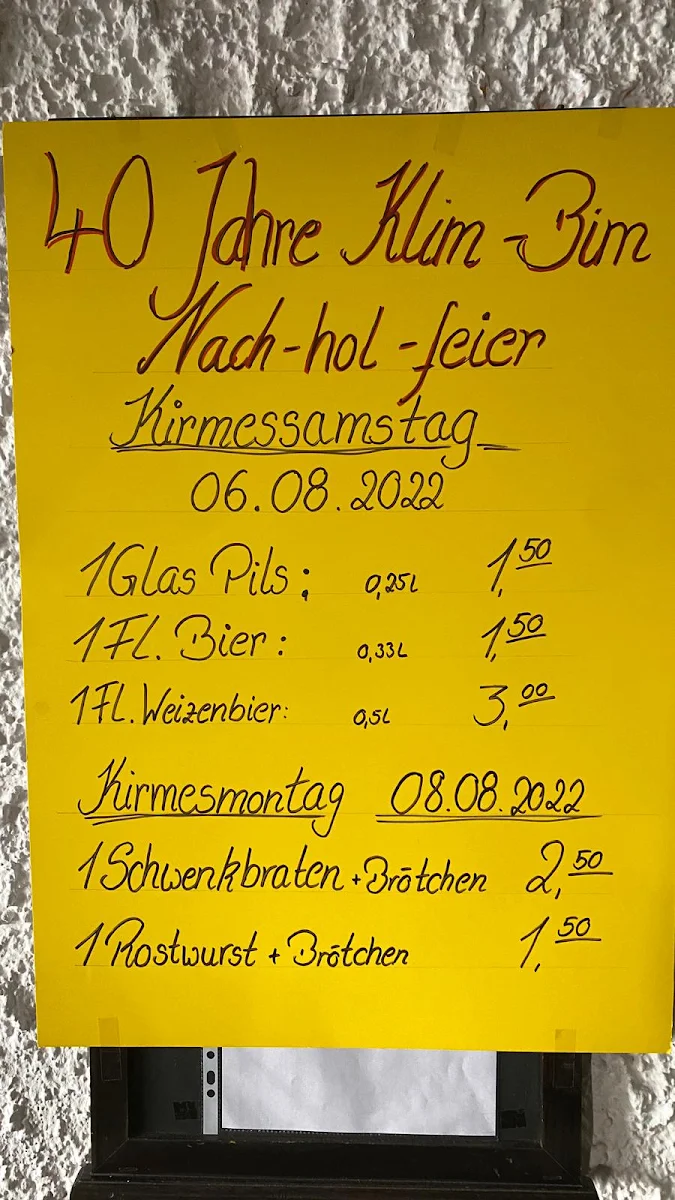 40 Jahre Klim-Bim
Nach-hol-feier
Kirmessamstag
06.08.2022
1 Glas Pils: 0,25L 1,50
1 Fl. Bier: 0,33L 1,50
1 Fl. Weizenbier: 0,5L 3,00
Kirmesmontag 08.08.2022
1 Schwenkbraten + Brötchen 2,50
1 Rostwurst + Brötchen 1,50